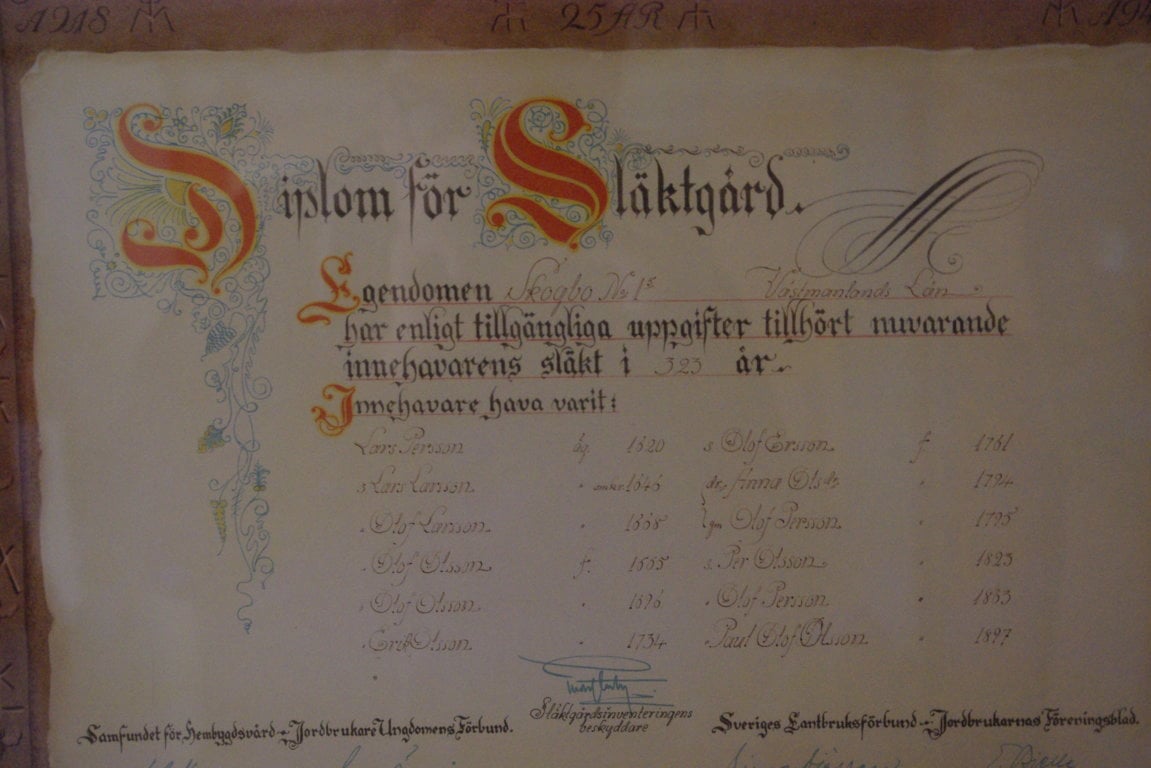 1918 25 ÅR 194
Diplom för Släktgård.
Egendomen Skogbo № 1ᵉ Västmanlands Län
har enligt tillgängliga uppgifter tillhört nuvarande
innehavarens släkt i 323 år.
Innehavare hava varit:
Lars Persson äg. 1620
s Lars Larsson " omkr. 1646
" Olof Larsson " 1668
" Olof Olsson f. 1665
" Olof Olsson " 1696
" Erik Olsson " 1734
s Olof Ersson f. 1761
dr. Anna Olsdr " 1794
gm Olof Persson " 1795
s. Per Olsson " 1823
" Olof Persson " 1863
" Paul Olof Olsson " 1897
Släktgårdsinventeringens
beskyddare
Samfundet för Hembygdsvård - Jordbrukare Ungdomens Förbund.
Sveriges Lantbruksförbund - Jordbrukarnas Föreningsblad.